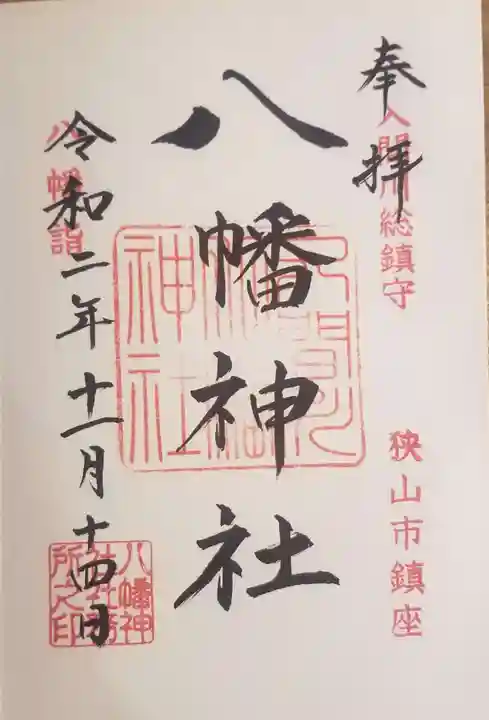 奉拝
入間川総鎮守
狭山市鎮座
八幡神社
入間川八幡神社
八幡詣
令和二年十一月十四日
八幡神社社務所之印